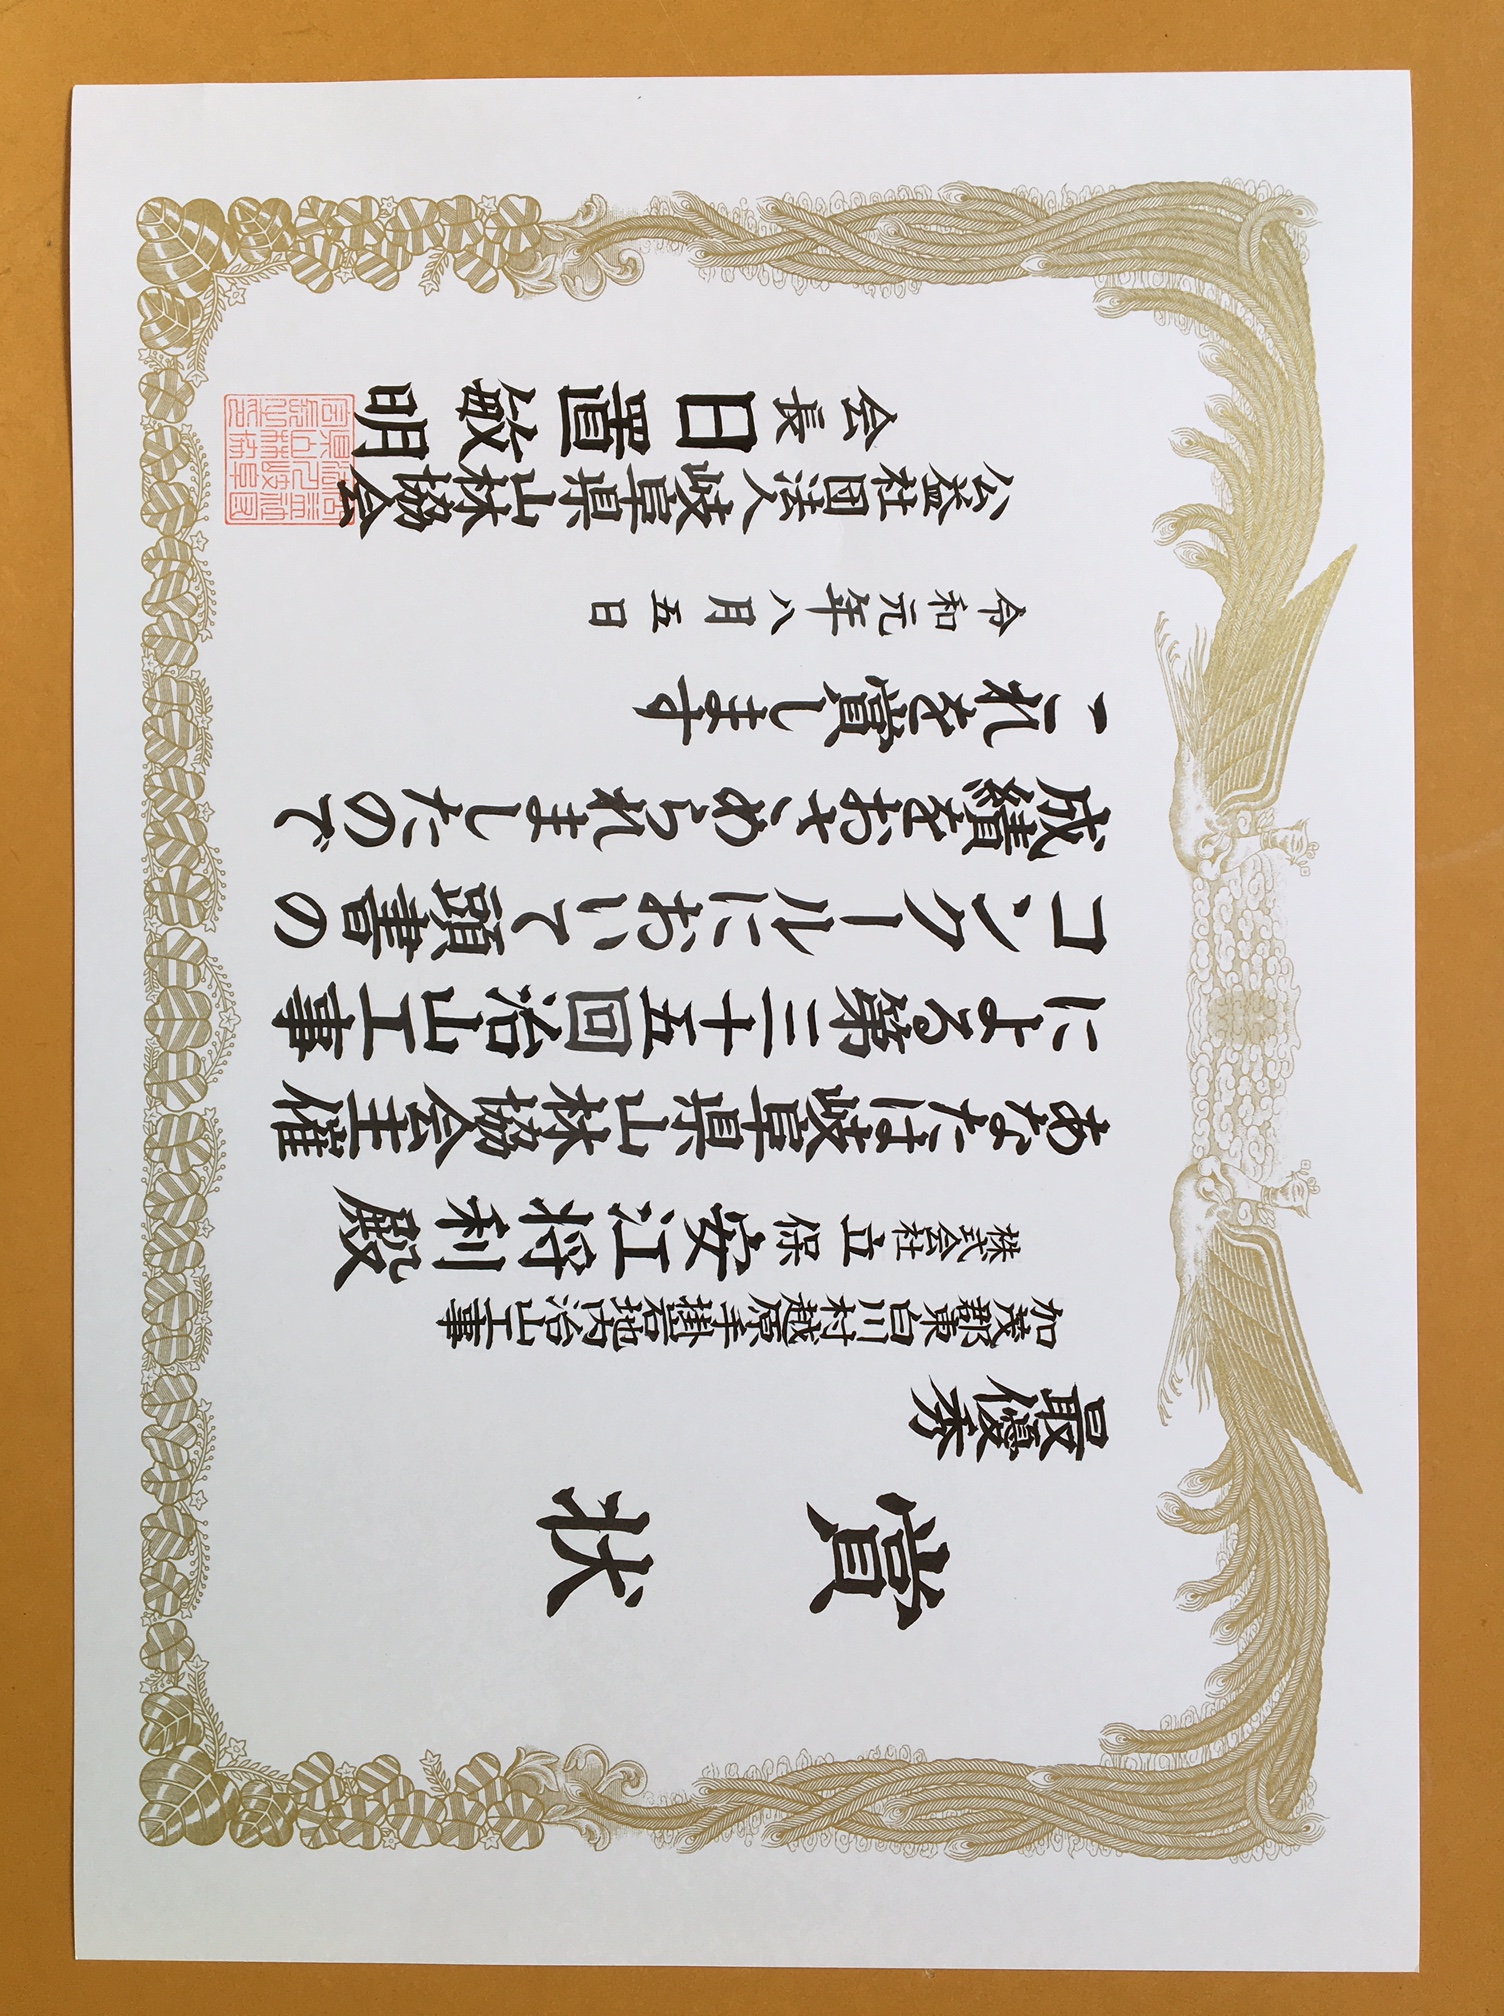 賞状
最優秀
加茂郡東白川村越原羊掛岩地内治山工事
株式会社 立保 安江将利殿
あなたは岐阜県山林協会主催
による第三十五回治山工事
コンクールにおいて頭書の
成績をおさめられましたので
これを賞します
令和元年八月五日
公益社団法人岐阜県山林協会
会長 日置敏明